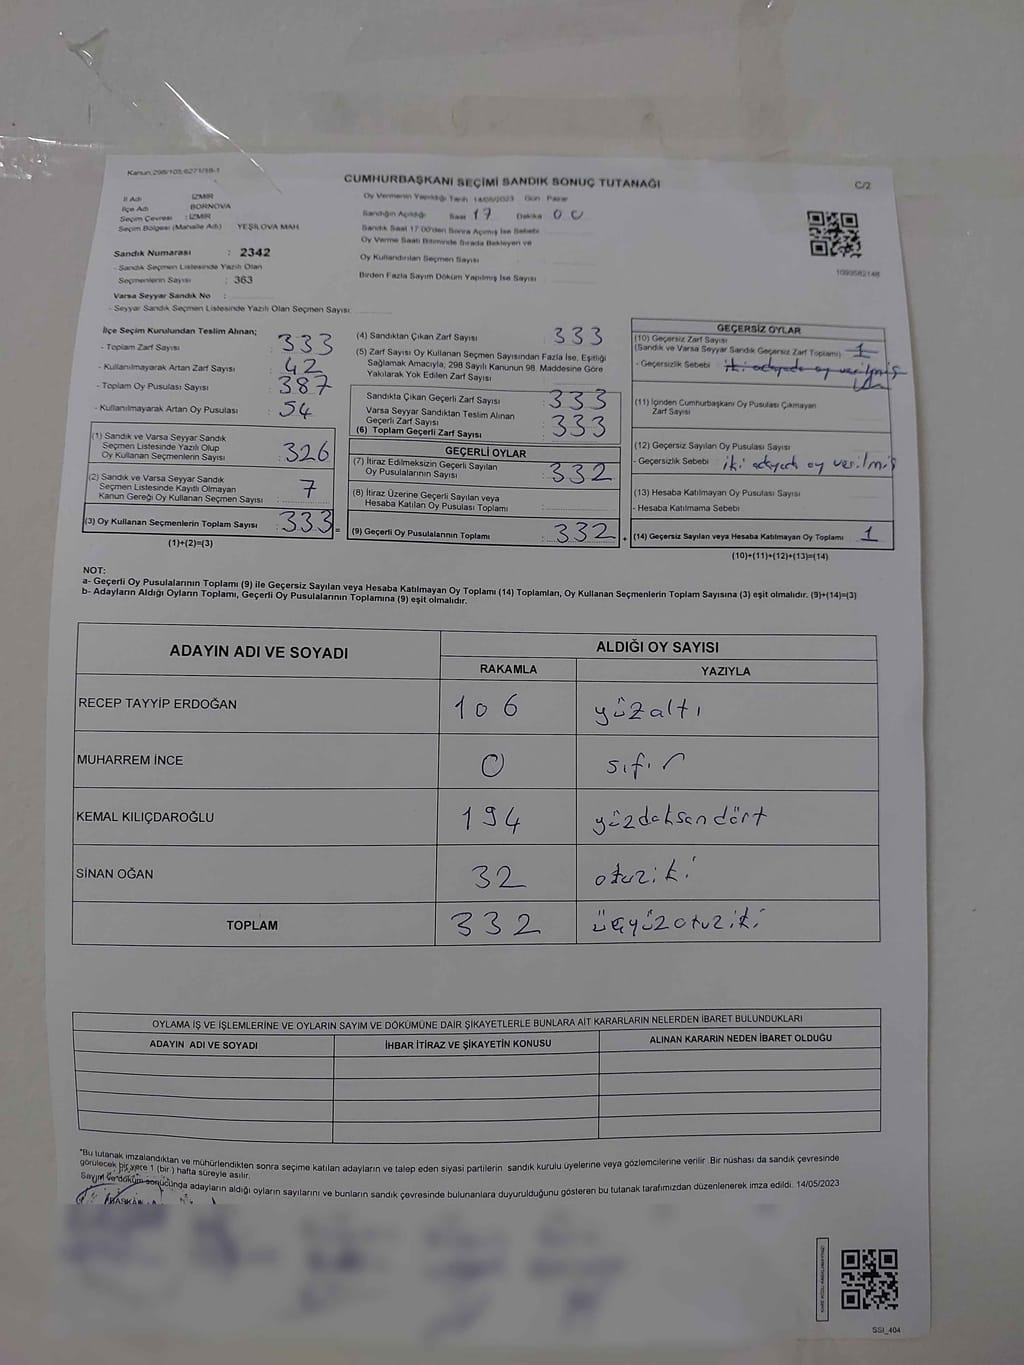 Kanun.298/103,6271/18-1
CUMHURBAŞKANI SEÇİMİ SANDIK SONUÇ TUTANAĞI
C/2
İl Adı İZMİR
İlçe Adı BORNOVA
Seçim Çevresi : İZMİR
Seçim Bölgesi (Mahalle Adı) YEŞİLOVA MAH
Oy Vermenin Yapıldığı Tarih 14/05/2023 Gün Pazar
Sandığın Açıldığı Saat 17 Dakika 00
Sandık Saat 17:00'den Sonra Açılmış İse Sebebi
Oy Verme Saati Bitiminde Sırada Bekleyen ve
Oy Kullandırılan Seçmen Sayısı
Birden Fazla Sayım Döküm Yapılmış İse Sayısı
1093582148
Sandık Numarası : 2342
- Sandık Seçmen Listesinde Yazılı Olan
Seçmenlerin Sayısı : 363
Varsa Seyyar Sandık No :
- Seyyar Sandık Seçmen Listesinde Yazılı Olan Seçmen Sayısı:
İlçe Seçim Kurulundan Teslim Alınan;
- Toplam Zarf Sayısı : 333
- Kullanılmayarak Artan Zarf Sayısı : 42
- Toplam Oy Pusulası Sayısı : 387
- Kullanılmayarak Artan Oy Pusulası : 54
(1) Sandık ve Varsa Seyyar Sandık
Seçmen Listesinde Yazılı Olup
Oy Kullanan Seçmenlerin Sayısı : 326
(2) Sandık ve Varsa Seyyar Sandık
Seçmen Listesinde Kayıtlı Olmayan
Kanun Gereği Oy Kullanan Seçmen Sayısı : 7
(3) Oy Kullanan Seçmenlerin Toplam Sayısı : 333 =
(1)+(2)=(3)
(4) Sandıktan Çıkan Zarf Sayısı : 333
(5) Zarf Sayısı Oy Kullanan Seçmen Sayısından Fazla İse, Eşitliği
Sağlamak Amacıyla, 298 Sayılı Kanunun 98. Maddesine Göre
Yakılarak Yok Edilen Zarf Sayısı
Sandıkta Çıkan Geçerli Zarf Sayısı : 333
Varsa Seyyar Sandıktan Teslim Alınan
Geçerli Zarf Sayısı
(6) Toplam Geçerli Zarf Sayısı : 333
GEÇERLİ OYLAR
(7) İtiraz Edilmeksizin Geçerli Sayılan
Oy Pusulalarının Sayısı : 332
(8) İtiraz Üzerine Geçerli Sayılan veya
Hesaba Katılan Oy Pusulası Toplamı
(9) Geçerli Oy Pusulalarının Toplamı : 332 +
GEÇERSİZ OYLAR
(10) Geçersiz Zarf Sayısı
(Sandık ve Varsa Seyyar Sandık Geçersiz Zarf Toplamı) : 1
- Geçersizlik Sebebi : iki adayada oy verilmiş
(11) İçinden Cumhurbaşkanı Oy Pusulası Çıkmayan
Zarf Sayısı
(12) Geçersiz Sayılan Oy Pusulası Sayısı
- Geçersizlik Sebebi : iki adayada oy verilmiş
(13) Hesaba Katılmayan Oy Pusulası Sayısı
- Hesaba Katılmama Sebebi
(14) Geçersiz Sayılan veya Hesaba Katılmayan Oy Toplamı : 1
(10)+(11)+(12)+(13)=(14)
NOT:
a- Geçerli Oy Pusulalarının Toplamı (9) ile Geçersiz Sayılan veya Hesaba Katılmayan Oy Toplamı (14) Toplamları, Oy Kullanan Seçmenlerin Toplam Sayısına (3) eşit olmalıdır. (9)+(14)=(3)
b- Adayların Aldığı Oyların Toplamı, Geçerli Oy Pusulalarının Toplamına (9) eşit olmalıdır.
ADAYIN ADI VE SOYADI
ALDIĞI OY SAYISI
RAKAMLA YAZIYLA
RECEP TAYYİP ERDOĞAN 106 yüzaltı
MUHARREM İNCE 0 sıfır
KEMAL KILIÇDAROĞLU 194 yüzdoksandört
SİNAN OĞAN 32 otuziki
TOPLAM 332 üçyüzotuziki
OYLAMA İŞ VE İŞLEMLERİNE VE OYLARIN SAYIM VE DÖKÜMÜNE DAİR ŞİKAYETLERLE BUNLARA AİT KARARLARIN NELERDEN İBARET BULUNDUKLARI
ADAYIN ADI VE SOYADI İHBAR İTİRAZ VE ŞİKAYETİN KONUSU ALINAN KARARIN NEDEN İBARET OLDUĞU
*Bu tutanak imzalandıktan ve mühürlendikten sonra seçime katılan adayların ve talep eden siyasi partilerin sandık kurulu üyelerine veya gözlemcilerine verilir .Bir nüshası da sandık çevresinde
görülecek bir yere 1 (bir ) hafta süreyle asılır.
Sayım ve döküm sonucunda adayların aldığı oyların sayılarını ve bunların sandık çevresinde bulunanlara duyurulduğunu gösteren bu tutanak tarafımızdan düzenlenerek imza edildi. 14/05/2023
BAŞKAN
SSI_404